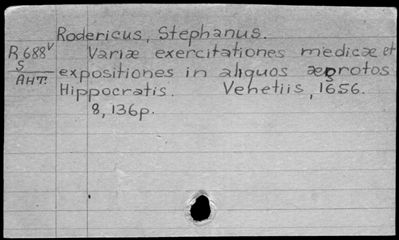 Rodericus, Stephanus.
R688v Variæ exercitationes medicæ et
S expositiones in aliquos ægrotos
AHT. Hippocratis. Venetiis, 1656.
8, 136p.